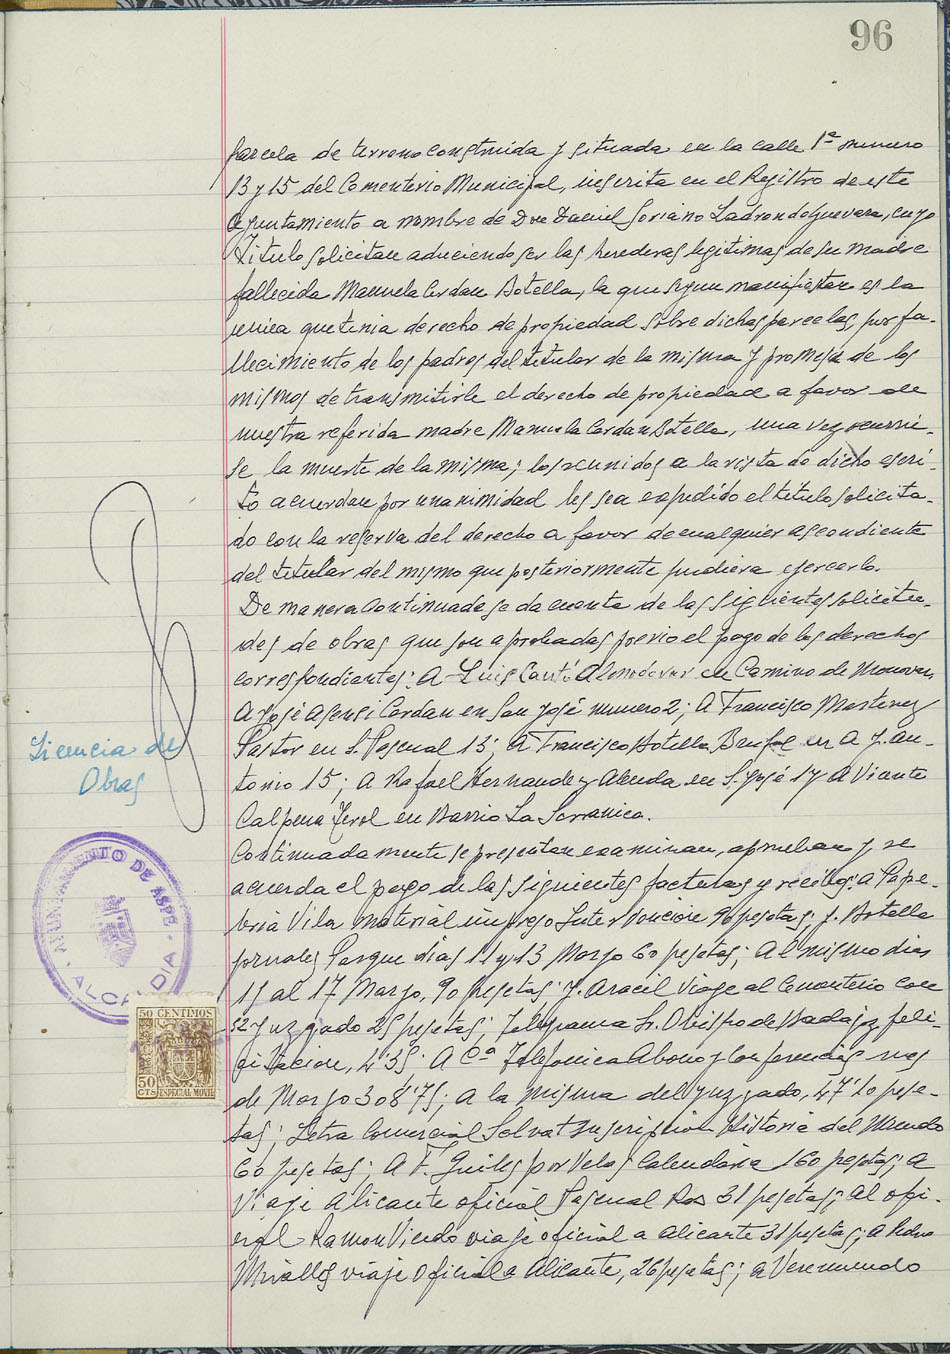 96
parcela de terreno construida y situada en la calle 1ª numero
13 y 15 del Cementerio Municipal, inscrita en el Registro de este
Ayuntamiento a nombre de Don Daniel Soriano Ladron de Guevara, cuyo
titulo solicitan aduciendo ser las herederas legitimas de su madre
fallecida Manuela Cerdan Botella, la que segun manifiestan es la
unica que tenia derecho de propiedad sobre dichas parcelas, por fa-
llecimiento de los padres del titular de la misma y promesa de los
mismos de transmitirle el derecho de propiedad a favor de
nuestra referida madre Manuela Cerdan Botella, una vez ocurrie-
se la muerte de la misma; los reunidos a la vista de dicho escri-
to acuerdan por unanimidad les sea expedido el titulo solicita-
do con la reserva del derecho a favor de cualquier ascendiente
del titular del mismo que posteriormente pudiera ejercerlo.
De manera continuada se da cuenta de las siguientes solicitu-
des de obras que son aprobadas previo el pago de los derechos
correspondientes: A Luis Cantó Almodovar en Camino de Monovar,
A José Asensi Cerdan en San José numero 2; A Francisco Martinez
Pastor en S. Pascual 13; A Francisco Botella Brufal en A J. An-
tonio 15; A Rafael Hernandez Abenda en S. José 17 A Vicente
Calpena Ferol en Barrio La Serranica.
Licencia de
Obras
Continuadamente se presentan examinan, aprueban y se
acuerda el pago de las siguientes facturas y recibos: a Pape-
leria Vila material impreso Intervencion 96 pesetas; J. Botella
jornales Parque dias 11 y 13 Marzo 60 pesetas; Al mismo dias
15 al 17 Marzo, 90 pesetas; J. Aracil Viaje al Cementerio con
Sr Juzgado 25 pesetas; Telegrama Sr. Obispo de Badajoz feli-
citacion, 4'35; A Cª Telefonica Abono y conferencias mes
de Marzo 308'75; A la misma del Juzgado, 47'10 pese-
tas; Letra Comercial Salvat suscripcion Historia del Mundo
60 pesetas; A F. Guilles por Velas Calendaria 160 pesetas; A
Viaje Alicante oficial Pascual Ros 31 pesetas; Al ofi-
cial Ramon Viendo viaje oficial a Alicante 31 pesetas; A Pedro
Miralles viaje Oficial a Alicante, 26 pesetas; a Veremundo
AYUNTAMIENTO DE ASPE
ALCALDIA
50 CENTIMOS
50
CTS
ESPECIAL MOVIL